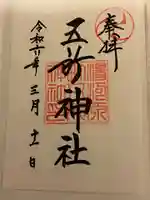 奉拝
五所神社
令和六年三月十一日